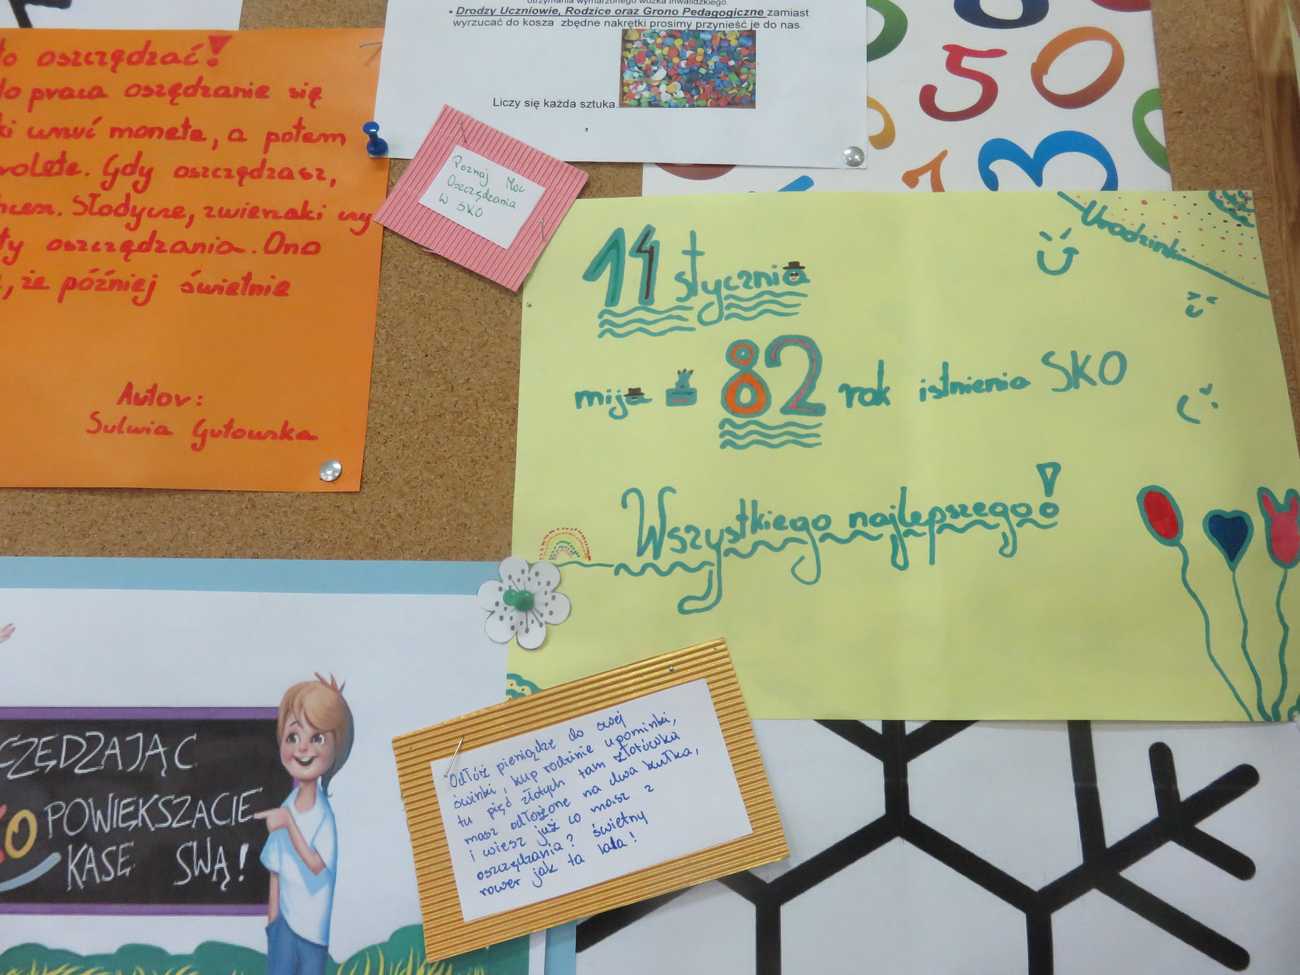 otrzymania wymarzonego wózka inwalidzkiego.
• Drodzy Uczniowie, Rodzice oraz Grono Pedagogiczne zamiast
wyrzucać do kosza zbędne nakrętki prosimy przynieść je do nas
Liczy się każda sztuka
oszczędzać!
praca oszędzanie się
monetę, a potem
Gdy oszczędzasz,
Słodycze, zwierzaki czy
oszczędzania. Ono
, że później świetnie
Autor:
Sylwia Gutowska
Poznaj Moc
Oszczędzania
W SKO
5 0
3
Urodzinki
11 stycznia
mija 82 rok istnienia SKO
Wszystkiego najlepszego!
CZĘDZAJĄC
O POWIĘKSZACIE
KASĘ SWĄ!
Odłóż pieniądze do swej
świnki, kup rodzinie upominki,
tu pięć złotych tam złotówka
masz odłożone na dwa kułka,
i wiesz już co masz z
oszczędzania? świetny
rower jak ta lala!